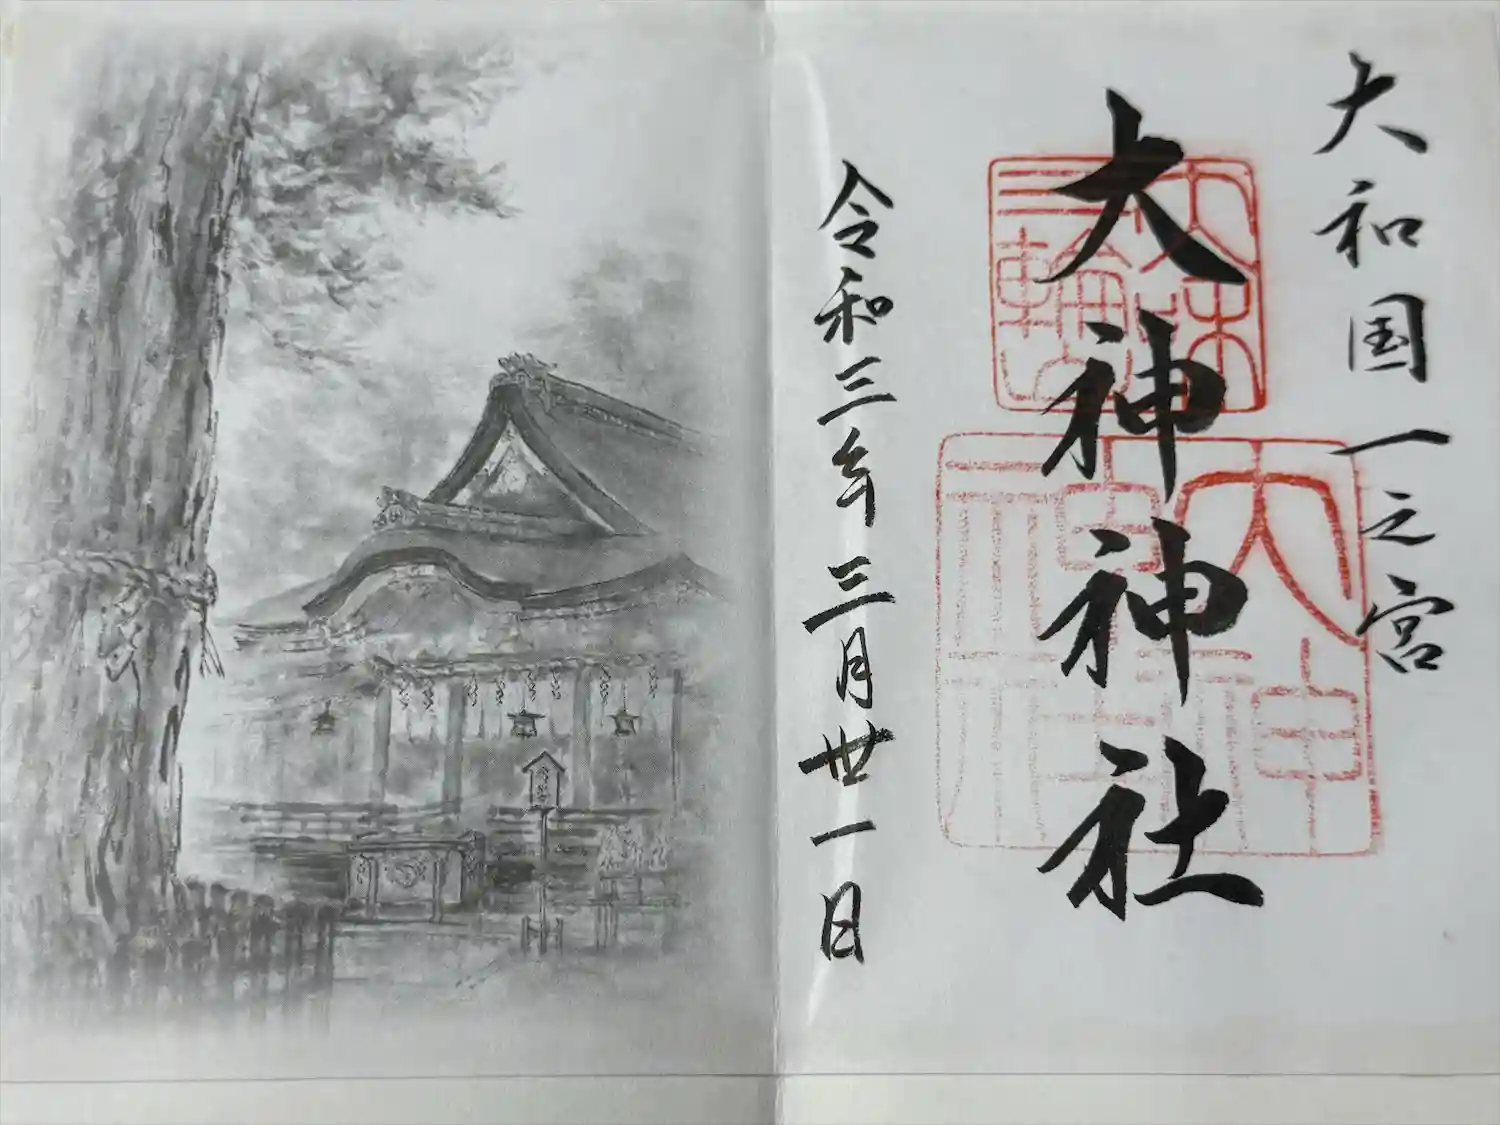 大和国一之宮
大神神社
令和三年三月丗一日
大神神社